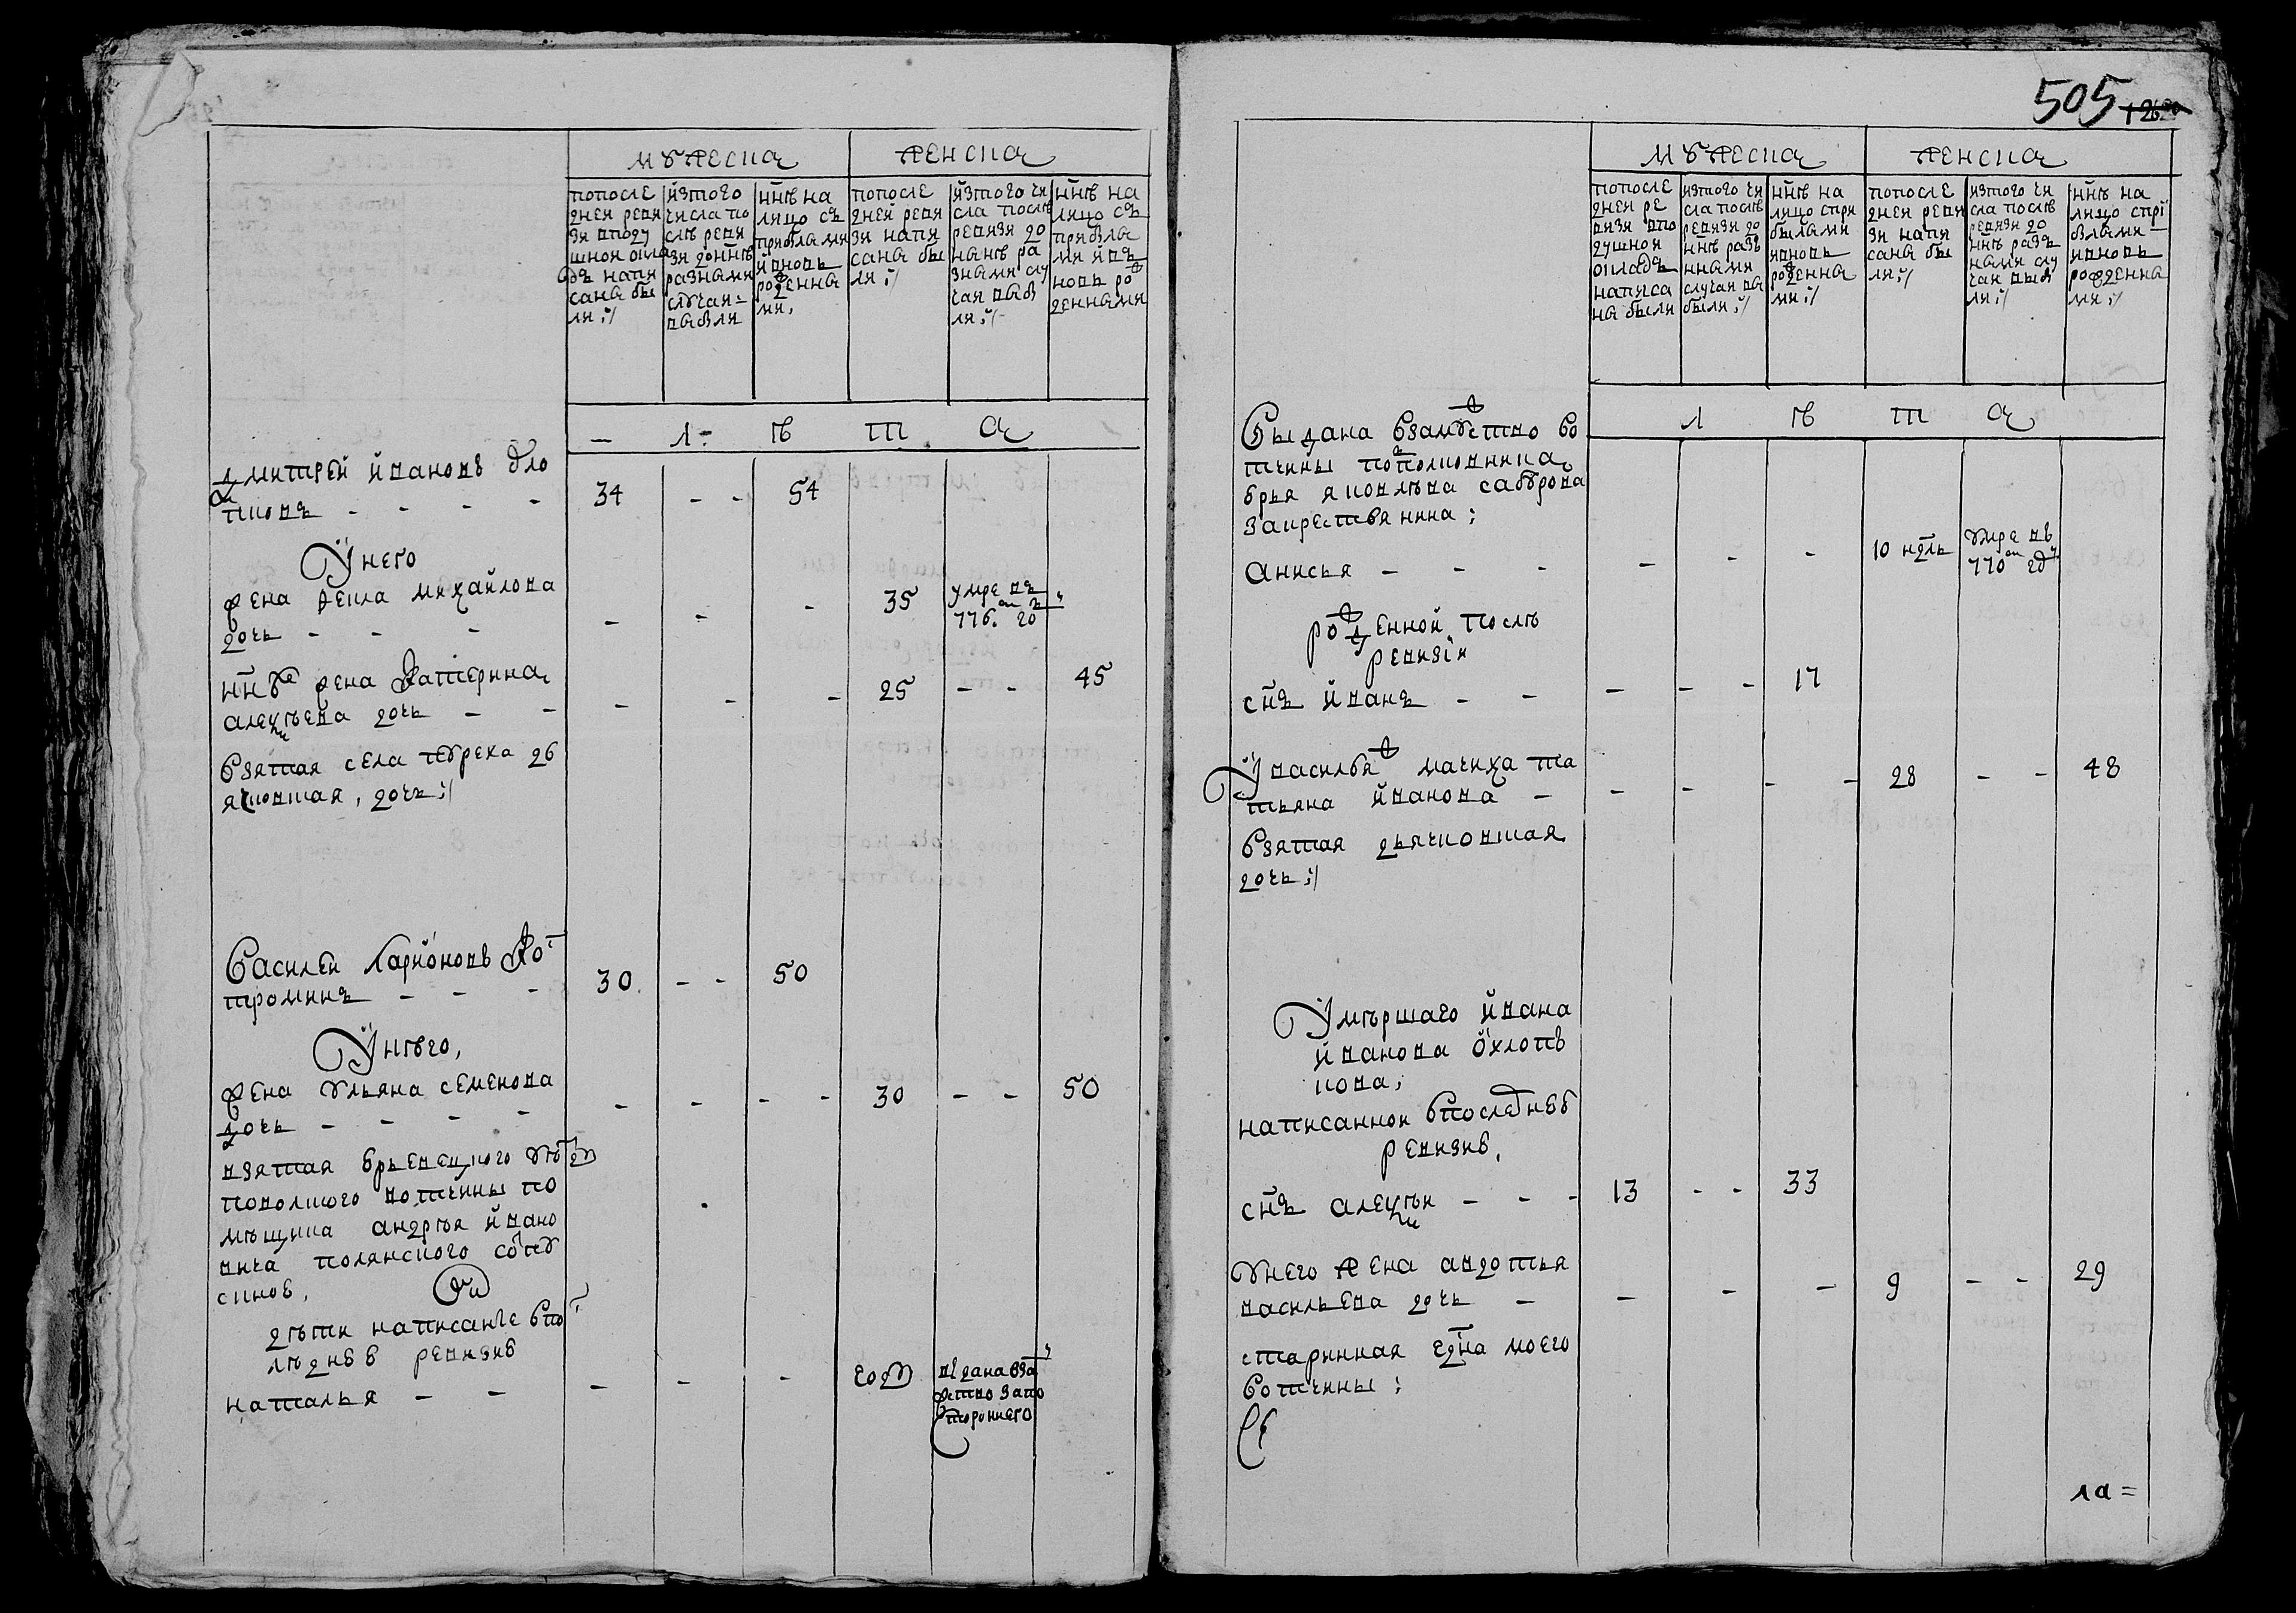 505
мужеска
женска
попосле
дней реви
зи вподу
шной окла
дъ напи
саны бы
ли ;/
изтого
числа по
слѣ реви
зи доннѣ
разными
случаи
выбыли
ннѣ на
лицо съ
прибылыми
ивновь
рожденны
ми,
попосле
дней реви
зи напи
саны бы
ли ;/
изтого чи
сла послѣ
ревизи до
нынѣ ра
зными слу
чаи выбы
ли ;/
ннѣ на
лицо съ
прибылы
ми ив
новь ро
жденными
л ѣ т а
Дмитрей ивановъ
34 - - 54
Унего
жена Фекла михайлова
дочь - - - - - - 35 умре въ
776м го
ннѣ жена Катерина
алексѣева дочь - - - - - 25 - - 45
Взятая села
дочь ;/
Василей Ларионовъ Ко
троминъ - - - 30 - - 50
Унѣго,
жена Ульяна семенова
дочь - - - - - - - 30 - - 50
взятая
вотчины по
мѣщика андрѣя ивано
вича полянского
дѣти написание впо
лѣднеѣ ревизиѣ
наталья - - - - - году выдана вза
мужство запо
стороннего
мужеска
женска
попосле
дней ре
визи впо
душной
окладъ
написа
ны были
изтого чи
сла послѣ
ревизи до
ннѣ разъ
нными
случаи вы
были ;/
ннѣ на
лицо спри
былыми
ивновь
рожденны
ми ;/
попосле
дней реви
зи напи
саны бы
ли ;/
изтого чи
сла послѣ
ревизи до
ннѣ разъ
ными слу
чаи выбы
ли ;/
ннѣ на
лицо спри
былыми
ивновь
рожденны
ми ;/
л ѣ т а
Выдана Взамужство во
тчины
яковлѣва сабурова
закрествянина ;
анисья - - - - - - 10 ндль умре въ
770м году
рожденной послѣ
ревизіи
снъ иванъ - - - - - 17
Увасилья мачиха та
тьяна иванова - - - - - 28 - - 48
Взятая дьячковшая
дочь ;/
Умѣршаго ивана
иванова охлопъ
кова,
написанной Впоследнеѣ
ревизиѣ,
снъ алексѣй - - - 13 - - 33
Унего жена авдотья
васильева дочь - - - - 9 - - 29
старинная моего
Вотчины ;
ла =